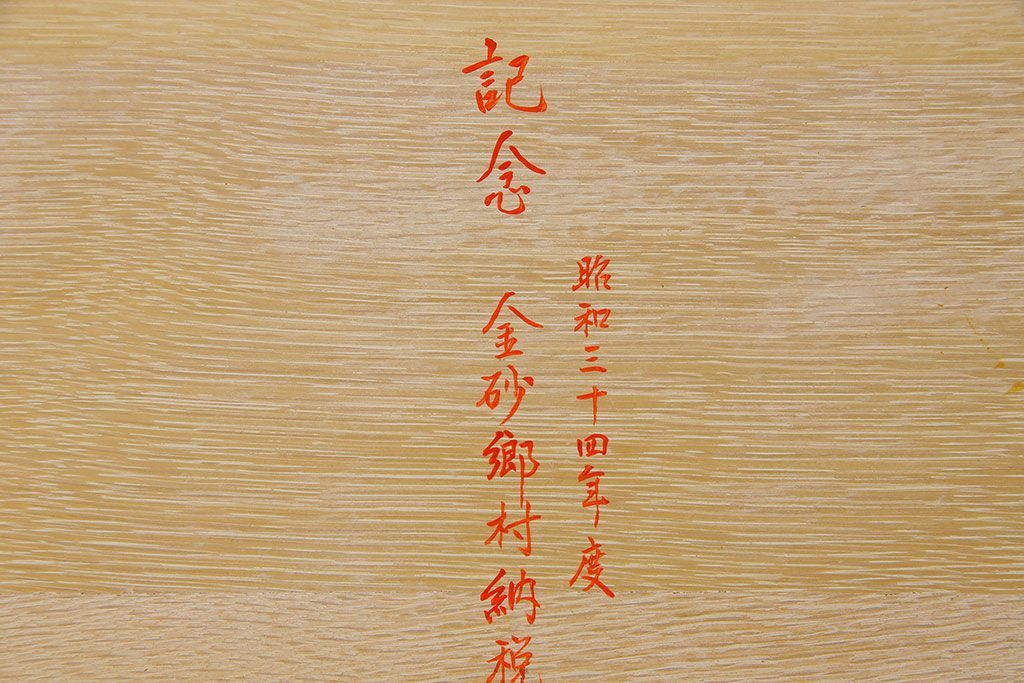 昭和三十四年度
記念 金砂郷村納税